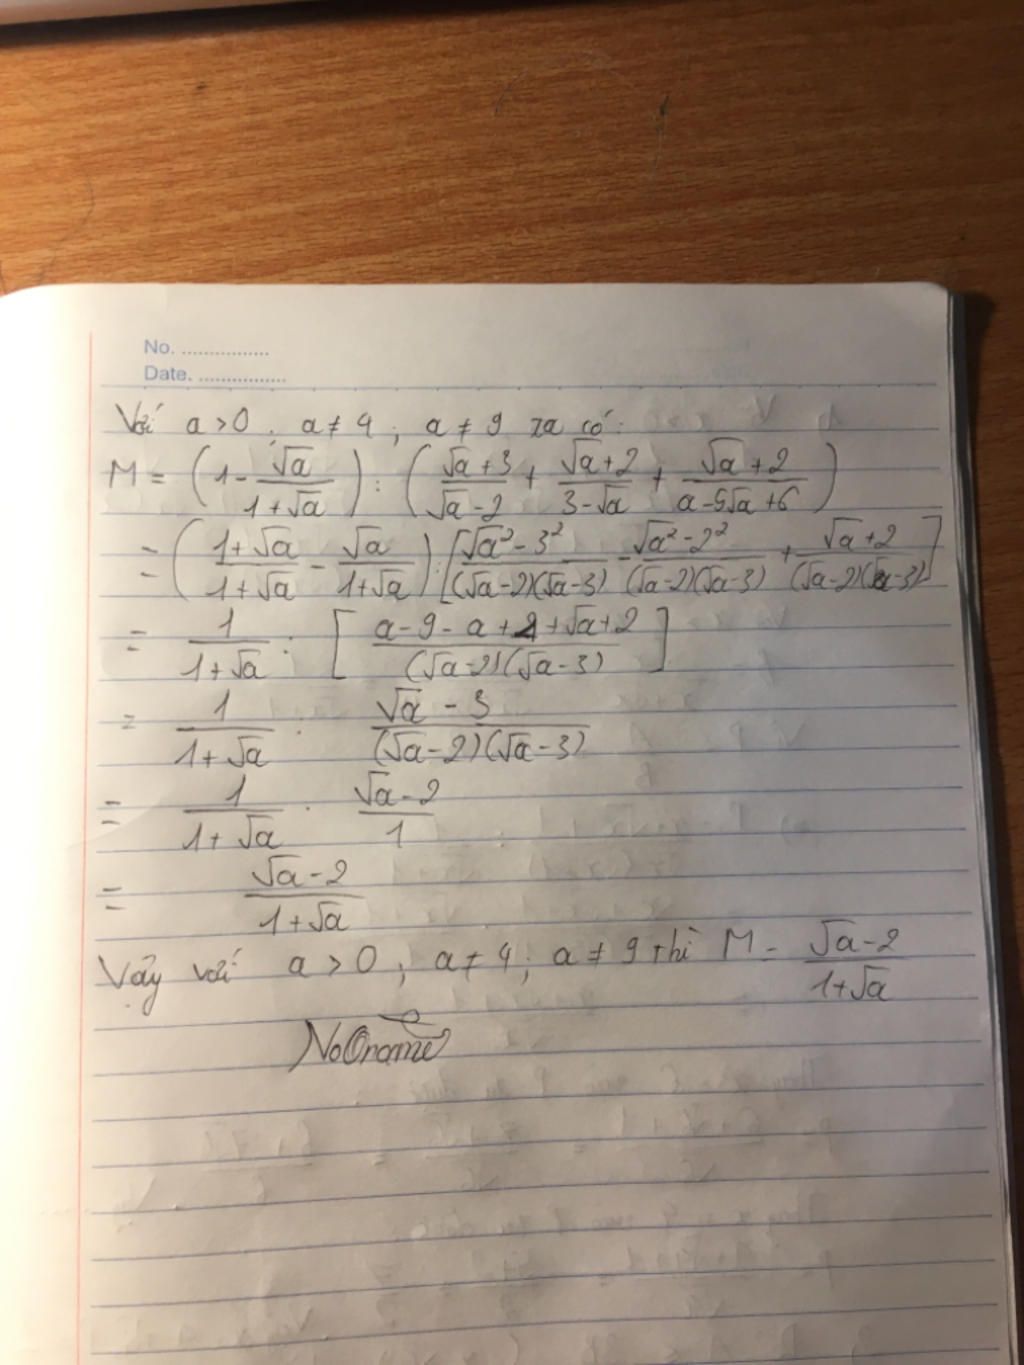 No. ................
Date. ................
Với a > 0 ; a ≠ 4 ; a ≠ 9 ta có :
M = (1 - √a / (1 + √a)) : ((√a + 3) / (√a - 2) + (√a + 2) / (3 - √a) + (√a + 2) / (a - 5√a + 6))
= ((1 + √a) / (1 + √a) - √a / (1 + √a)) : [(√a² - 3²) / (√a - 2)(√a - 3) - (√a² - 2²) / (√a - 2)(√a - 3) + (√a + 2) / (√a - 2)(√a - 3)]
= 1 / (1 + √a) : [(a - 9 - a + 4 + √a + 2) / (√a - 2)(√a - 3)]
= 1 / (1 + √a) : (√a - 3) / (√a - 2)(√a - 3)
= 1 / (1 + √a) . (√a - 2) / 1
= (√a - 2) / (1 + √a)
Vậy với a > 0 ; a ≠ 4 ; a ≠ 9 thì M = (√a - 2) / (1 + √a)
NoOname